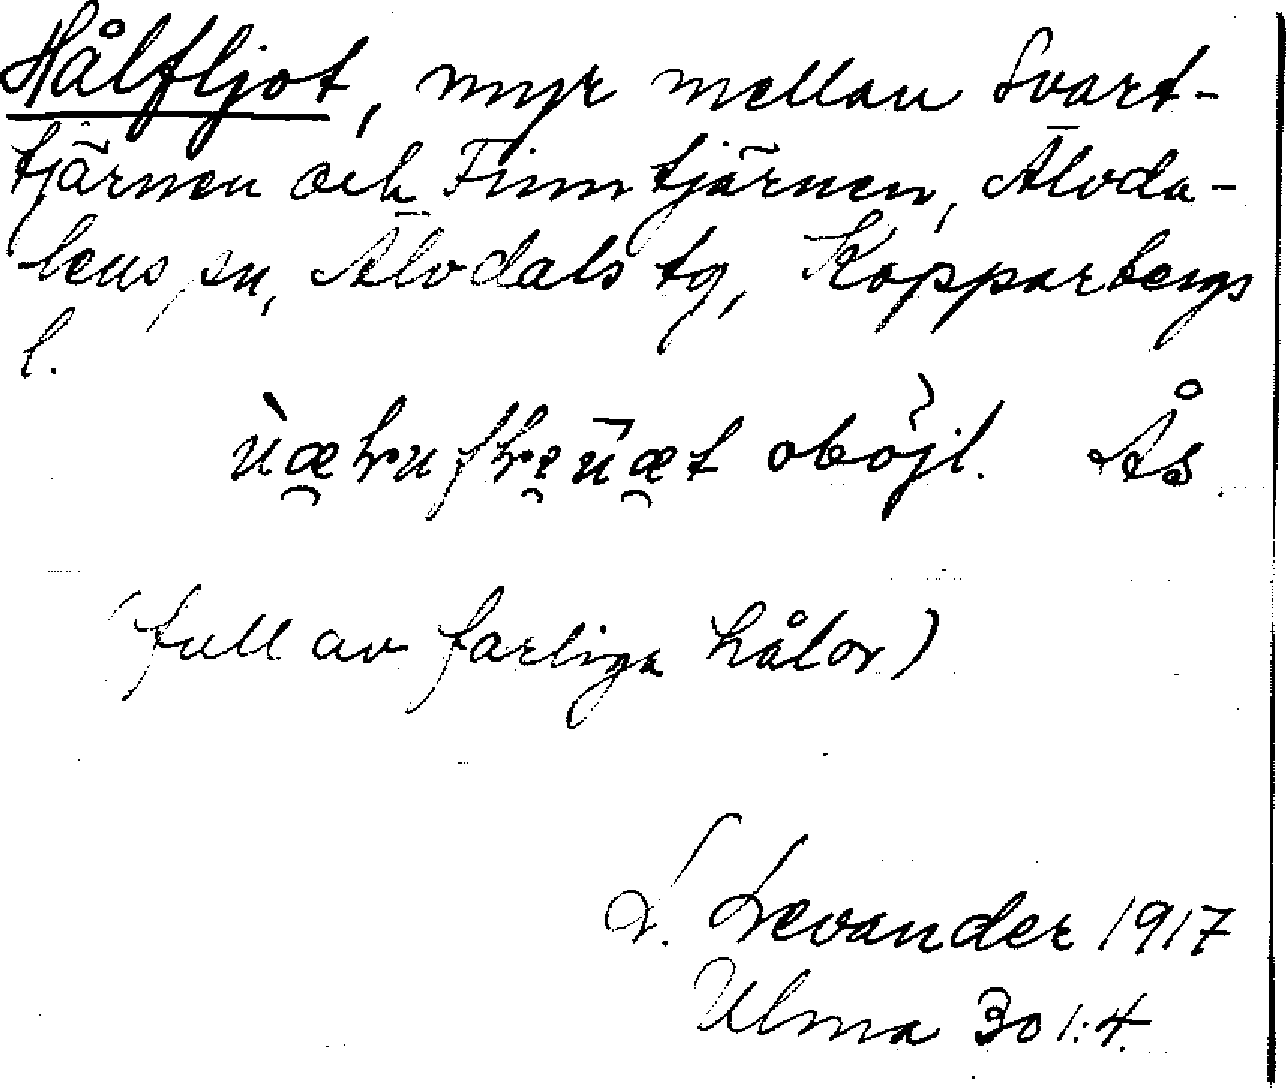 Hålfljot, myr mellan Svart-
tjärnen och Finntjärnen, Älvda-
lens sn, Älvdals tg, Kopparbergs
l.
oböjl. Ås
(full av farliga hålor)
L. Levander 1917
Ulma 301:4.